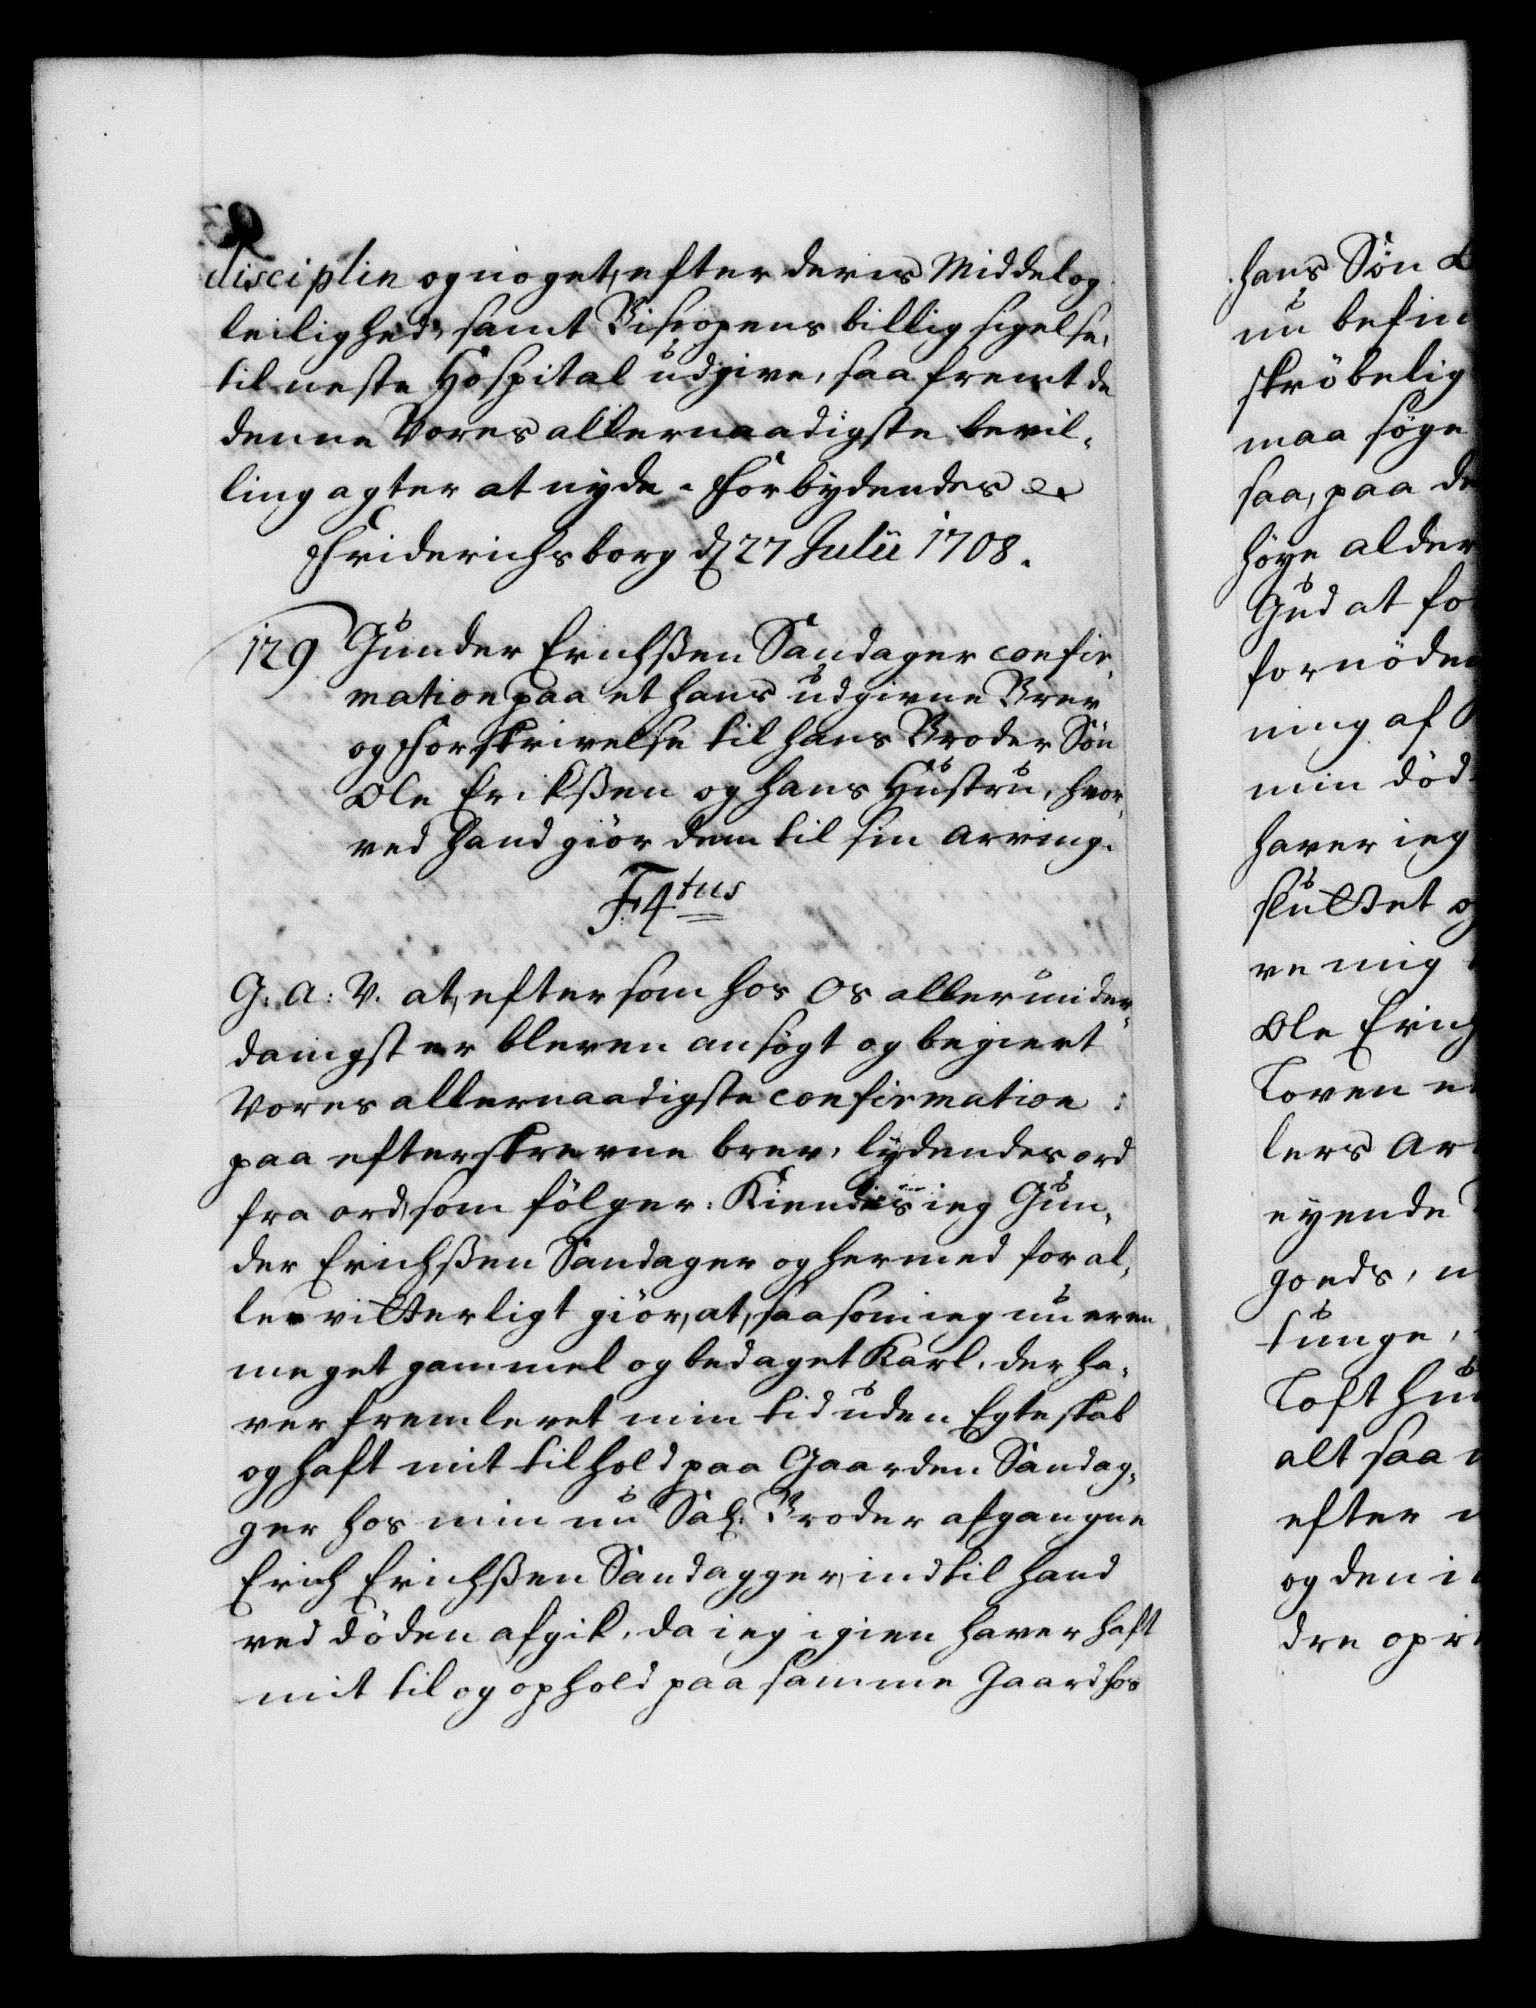 disciplin og noget, efter deris Middel og
leilighed, samt Biscopens billig sigelse,
til neste Hospital udgive, saa fremt de
denne Vores allernaadigste bevil-
ling agter at nyde. Forbydendes &c
Friderichsborg d 27 Julii 1708.
129 Gunder Erichssen Sandager confir-
mation paa et hans udgivne Brev
og Forskrivelse til hans Broder Søn
Ole Erikssen og hans Hustru, hvor-
ved hand giør dem til sin arving.
F. 4tus
G: A: V. at, eftersom hos Os allerunder-
danigst er bleven ansøgt og begiert
Vores allernaadigste confirmation
paa efterskrevne brev, lydendes ord
fra ord, som følger: Kiendis ieg Gun-
der Erichssen Sandager og hermed for al-
le vitterligt giør, at, saasom ieg nu er en
meget gammel og bedaget Karl, der ha-
ver fremlevet min tid uden Egteskab
og haft mit tilhold paa Gaarden Sandag-
ger hos min nu Sal. Broder afgangne
Erich Erichssen Sandagger, indtil hand
ved døden afgik, da ieg igien haver haft
mit til og ophold paa samme Gaard hos
hans Søn
nu befin
skrøbelig
maa søge
saa, paa de
høye alder
Gud at fo
fornøde
ning af
min død
haver ieg
sluttet o
ve mig
Ole Erich
Loven e
lers Ar
eyende
goeds, u
tunge,
Loft hu
alt saa
efter
og den i
dre opr